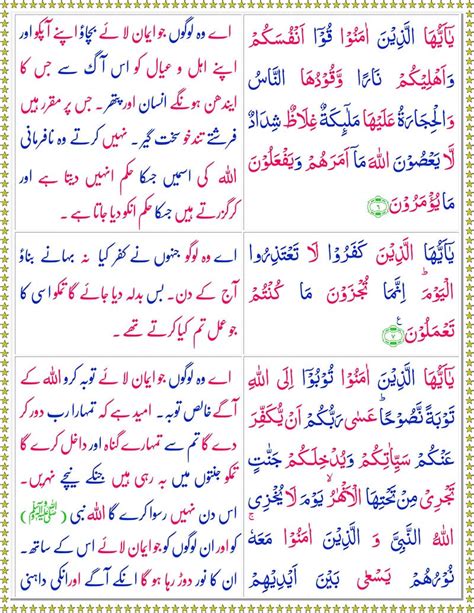 يٰۤاَيُّهَا الَّذِيْنَ اٰمَنُوْا قُوْۤا اَنْفُسَكُمْ
وَاَهْلِيْكُمْ نَارًا وَّقُوْدُهَا النَّاسُ
وَالْحِجَارَةُ عَلَيْهَا مَلٰٓئِكَةٌ غِلَاظٌ شِدَادٌ
لَّا يَعْصُوْنَ اللّٰهَ مَاۤ اَمَرَهُمْ وَيَفْعَلُوْنَ
مَا يُؤْمَرُوْنَ ۶
اے وہ لوگوں جو ایمان لائے بچاؤ اپنے آپکو اور
اپنے اہل و عیال کو اس آگ سے جس کا
ایندھن ہونگے انسان اور پتھر۔ جس پر مقرر ہیں
فرشتے تندخو سخت گیر۔ نہیں کرتے وہ نافرمانی
اللہ کی اسمیں جسکا حکم انہیں دیتا ہے اور
کرگزرتے ہیں جسکا حکم انکو دیا جاتا ہے۔
يٰۤاَيُّهَا الَّذِيْنَ كَفَرُوْا لَا تَعْتَذِرُوا
الْيَوْمَ ؕ اِنَّمَا تُجْزَوْنَ مَا كُنْتُمْ
تَعْمَلُوْنَ ۷
اے وہ لوگو جنہوں نے کفر کیا نہ بہانے بناؤ
آج کے دن۔ بس بدلہ دیا جائے گا تمکو اسی کا
جو عمل تم کیا کرتے تھے۔
يٰۤاَيُّهَا الَّذِيْنَ اٰمَنُوْا تُوْبُوْۤا اِلَى اللّٰهِ
تَوْبَةً نَّصُوْحًا ؕ عَسٰى رَبُّكُمْ اَنْ يُّكَفِّرَ
عَنْكُمْ سَيِّاٰتِكُمْ وَيُدْخِلَكُمْ جَنّٰتٍ
تَجْرِىْ مِنْ تَحْتِهَا الْاَنْهٰرُ ۙ يَوْمَ لَا يُخْزِى
اللّٰهُ النَّبِىَّ وَ الَّذِيْنَ اٰمَنُوْا مَعَهٗ ۚ
نُوْرُهُمْ يَسْعٰى بَيْنَ اَيْدِيْهِمْ
اے وہ لوگوں جو ایمان لائے توبہ کرو اللہ کے
آگے خالص توبہ۔ امید ہے کہ تمہارا رب دور کر
دے گا تم سے تمہارے گناہ اور داخل کرے گا
تمکو جنتوں میں بہ رہی ہیں جنکے نیچے نہریں۔
اس دن نہیں رسوا کرے گا اللہ نبی (ﷺ)
کو اور ان لوگوں کو جو ایمان لائے اس کے ساتھ۔
ان کا نور دوڑ رہا ہو گا انکے آگے اورانکی داہنی